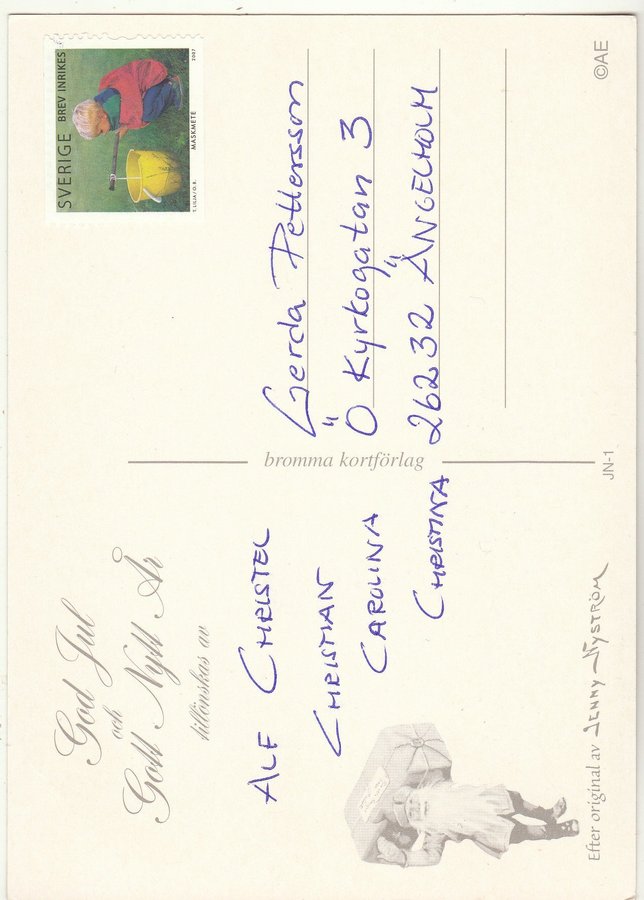 God Jul
och
Gott Nytt År
tillönskas av
ALF CHRISTEL
CHRISTIAN
CAROLINA
CHRISTINA
Efter original av JENNY NYSTRÖM
bromma kortförlag
JN-1
SVERIGE BREV INRIKES
T. LILJA / G.B.
MASKMETE
2007
Gerda Pettersson
Ö Kyrkogatan 3
26232 ÄNGELHOLM
©AE